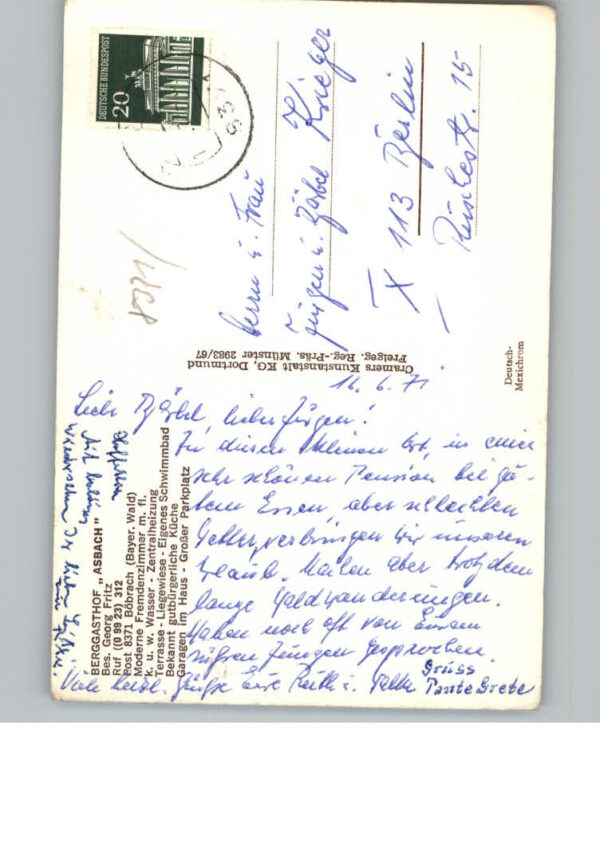 DEUTSCHE BUNDESPOST
20
Herrn u. Frau
Jürgen u. Bärbel Krieger
X 113 Berlin
15
8371/
Cramers Kunstanstalt KG, Dortmund
Freigeg. Reg.-Präs. Münster 2983/67
Deutsch-
Mexichrom
16.6.71
Liebe Bärbel, lieber Jürgen!
In diesem kleinen Ort, in einer
sehr schönen Pension bei gu-
tem Essen, aber schlechten
Wetter, verbringen wir unseren
Urlaub. Machen aber trotzdem
lange Waldwanderungen.
Haben noch oft von Eurem
süßen Jungen gesprochen.
Viele herzl. Grüße Eure Ruth u.
Gruss
Tante Grete
BERGGASTHOF „ASBACH"
Bes. Georg Fritz
Ruf ((0 99 23) 312
Post 8371 Böbrach (Bayer. Wald)
Moderne Fremdenzimmer m. fl.
k. u. w. Wasser - Zentralheizung
Terrasse - Liegewiese - Eigenes Schwimmbad
Bekannt gutbürgerliche Küche
Garagen im Haus - Großer Parkplatz